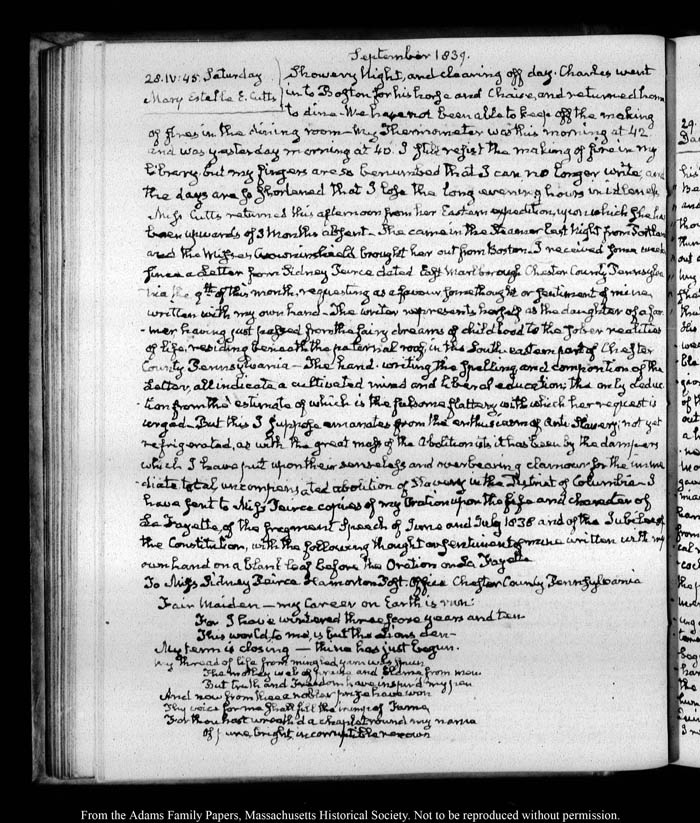 September 1839.
28. IV: 45. Saturday
Mary Estelle E. Cutts
Showery Night, and clearing off day. Charles went
into Boston for his horse and Chaise, and returned home
to dine. We have not been able to keep off the making
of fires in the dining room—My Thermometer was this morning at 42
and was yesterday morning at 40. I still resist the making of fire in my
library but my fingers are so benumbed that I can no longer write, and
the days are so shortened that I lose the long evening hours in idleness.
Miss Cutts returned this afternoon from her Eastern expedition, upon which she has
been upwards of 3 Months absent. She came in the Steamer last Night from Portland
and the Misses Crowninshield brought her out from Boston. I received some weeks
since a Letter from Sidney Peirce dated East Marlborough Chester County Pennsylva-
nia the 9th. of this month, requesting as a favour some thought or sentiment of mine,
written with my own hand—The writer represents herself as the daughter of a far-
mer having just passed from the fairy dreams of childhood to the sober realities
of life, residing beneath the paternal roof, in the South eastern part of Chester
County Pennsylvania—The hand-writing the spelling and composition of the
Letter, all indicate a cultivated mind and liberal education; the only deduc-
tion from the estimate of which is the fulsome flattery with which her request is
urged—But this I suppose emanates from the enthusiasm of Anti-Slavery; not yet
refrigerated, as with the great mass of the Abolitionists it has been by the dampers
which I have put upon their senseless and overbearing clamour for the imme-
diate total uncompensated abolition of Slavery in the District of Columbia—I
have sent to Miss Peirce copies of my Oration upon the Life and character of
La Fayette, of the fragment Speech of June and July 1838 and of the Jubilee of
the Constitution, with the following thought or sentiment of mine written with my
own hand on a blank leaf before the Oration on La Fayette
To Miss Sidney Peirce Hamorton Post Office Chester County Pennsylvania
Fair Maiden—my career on Earth is run:
For I have wintered three score years and ten
This world, to me, is but the Lions den—
My term is closing—thine has just begun.
My thread of life from mingled yarn was spun
The motley web of praise and blame from men
But truth and Freedom have inspir'd my pen
And now from thee a nobler prize have won
Thy voice for me shall fill the trump of Fame
For thou hast wreath'd a chaplet round my name
Of pure, bright, incorruptible renown
29.
From the Adams Family Papers, Massachusetts Historical Society. Not to be reproduced without permission.